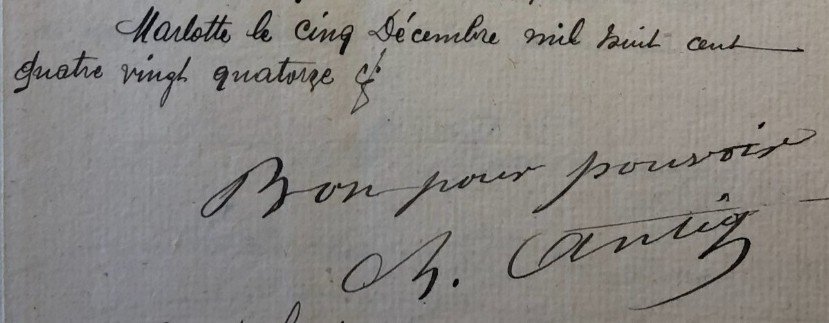 Marlotte le cinq Décembre mil huit cent
quatre vingt quatorze
Bon pour pouvoir
Ch. Antig